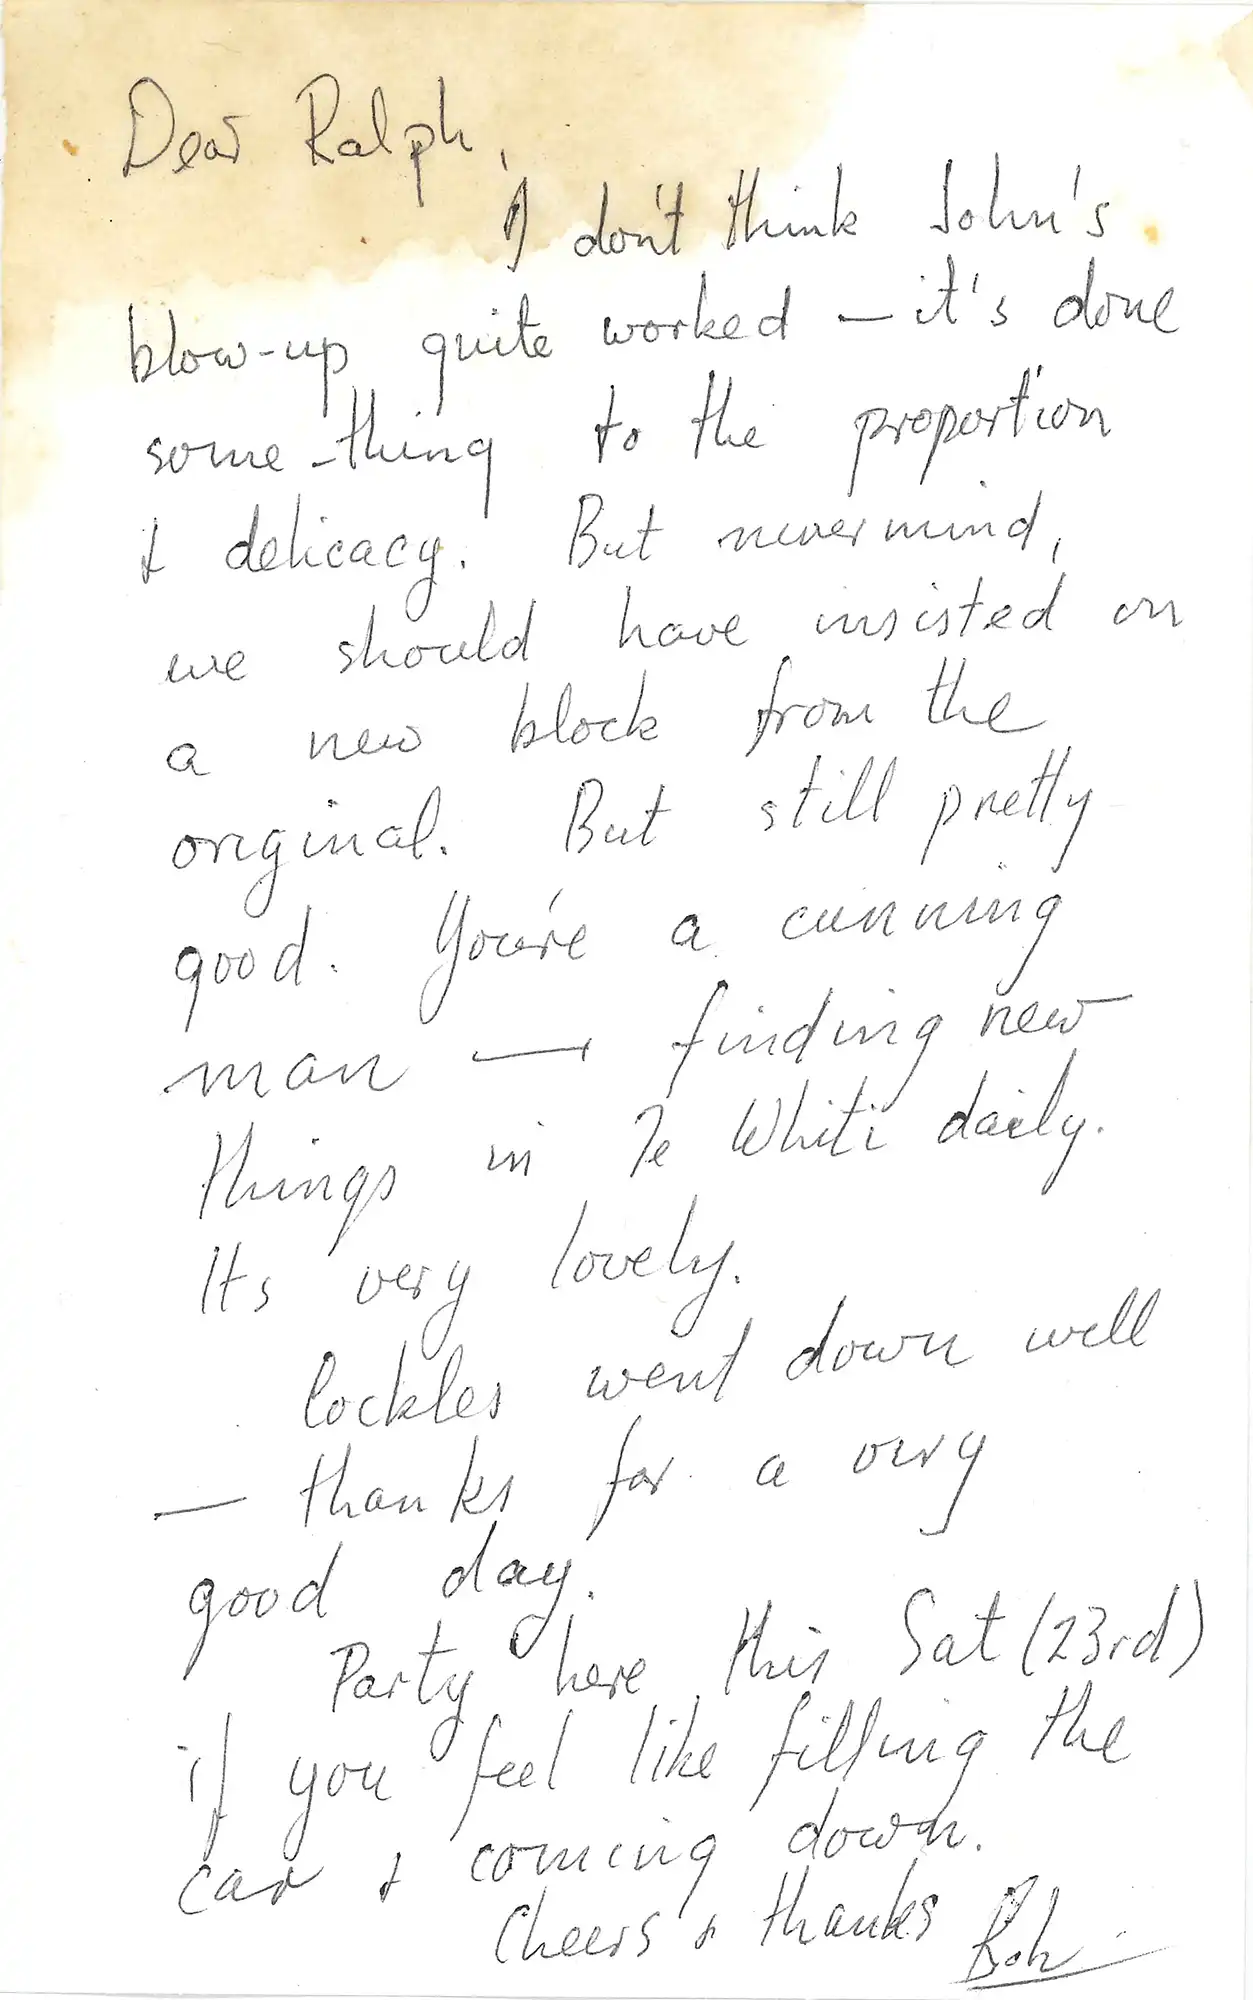 Dear Ralph,
I don't think John's
blow-up quite worked — it's done
some-thing to the proportion
& delicacy. But nevermind,
we should have insisted on
a new block from the
original. But still pretty
good. You're a cunning
man — finding new
things in Te Whiti daily.
Its very lovely.
Cockles went down well
— thanks for a very
good day.
Party here this Sat (23rd)
if you feel like filling the
car & coming down.
Cheers & thanks Bob